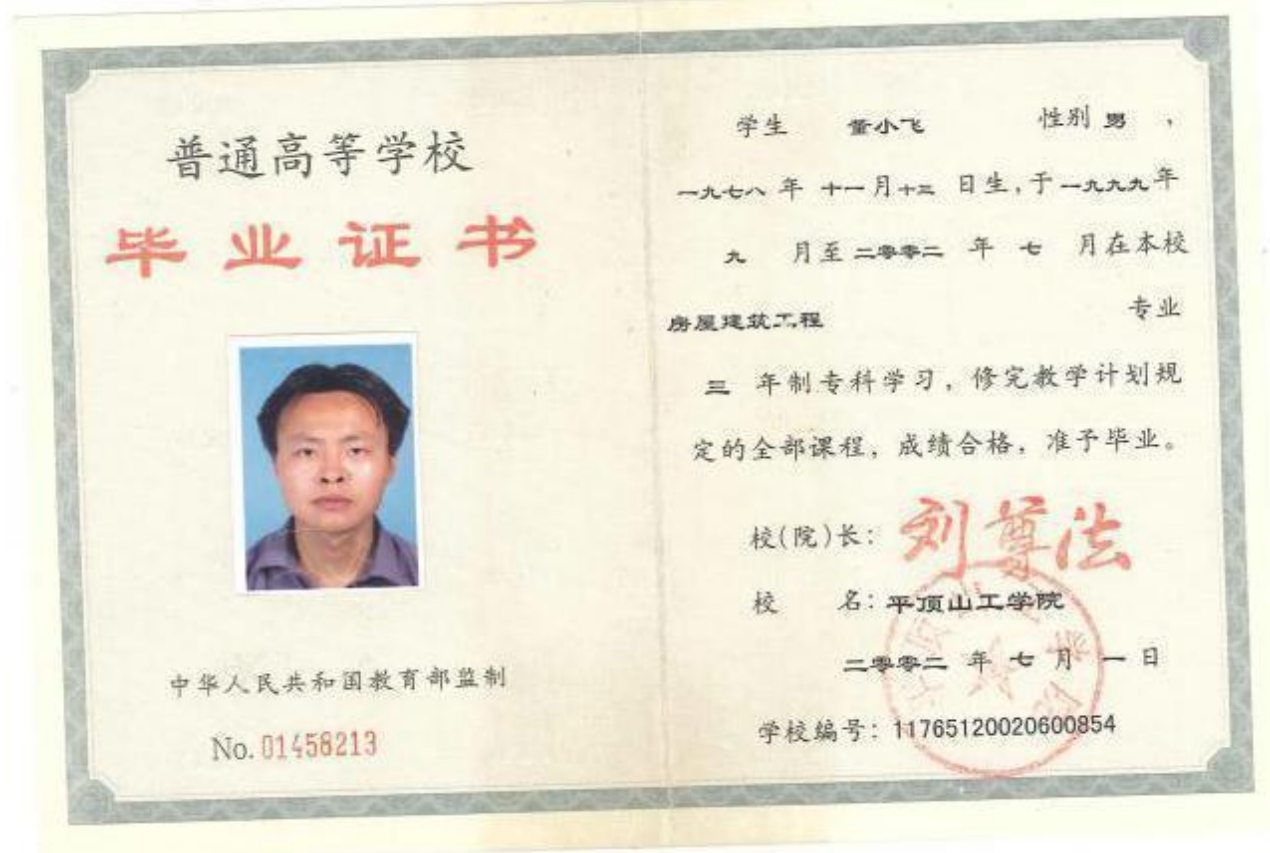 普通高等学校
毕业证书
中华人民共和国教育部监制
No. 01458213
学生 董小飞 性别 男 ，
一九七八 年 十一月十三 日生，于一九九九年
九 月至二零零二 年 七 月在本校
房屋建筑工程 专业
三 年制专科学习，修完教学计划规
定的全部课程，成绩合格，准予毕业。
校(院)长：刘尊法
校 名：平顶山工学院
二零零二 年 七 月 一 日
学校编号：11765120020600854
平顶山工学院